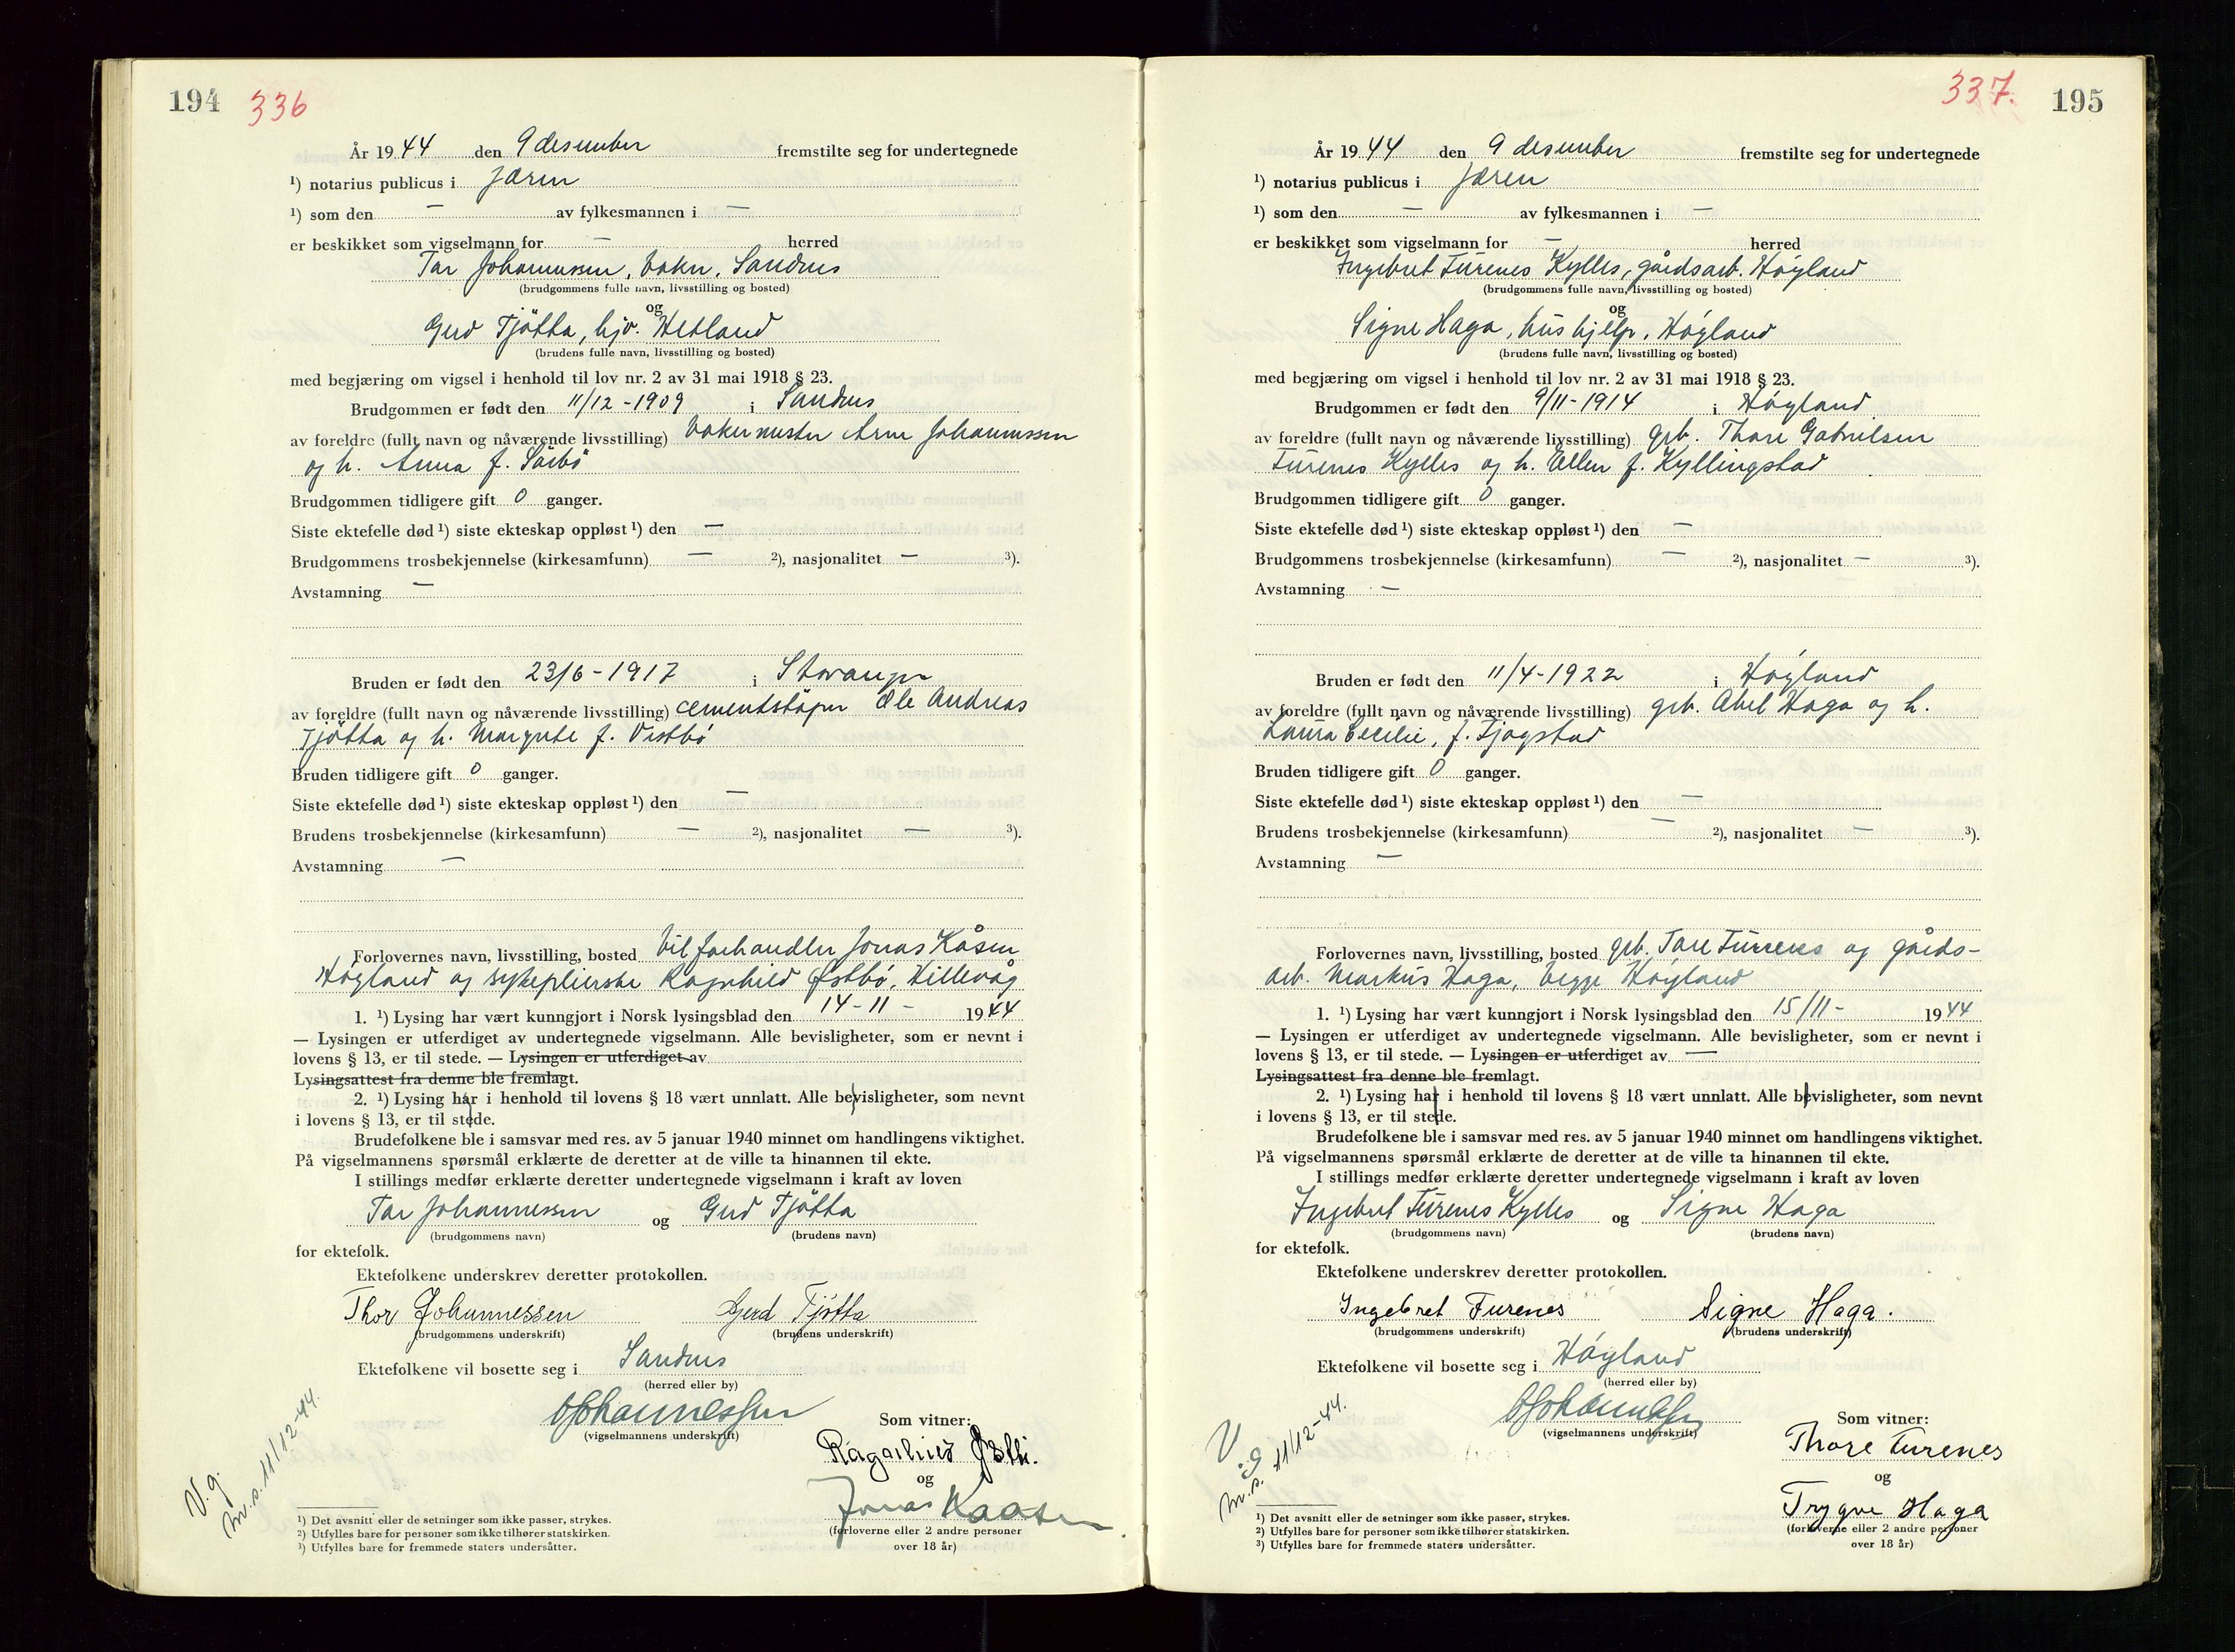 194 336
År 19 44 den 9 desember fremstilte seg for undertegnede
¹) notarius publicus i Jæren
¹) som den — av fylkesmannen i —
er beskikket som vigselmann for — herred
Tor Johannessen, baker, Sandnes
(brudgommens fulle navn, livsstilling og bosted)
og
Gerd Tjötta, hjv. Hetland
(brudens fulle navn, livsstilling og bosted)
med begjæring om vigsel i henhold til lov nr. 2 av 31 mai 1918 § 23.
Brudgommen er født den 11/12 - 1909 i Sandnes
av foreldre (fullt navn og nåværende livsstilling) bakermester Arne Johannessen
og h. Anna f. Sörbö
Brudgommen tidligere gift 0 ganger.
Siste ektefelle død ¹) siste ekteskap oppløst ¹) den —
Brudgommens trosbekjennelse (kirkesamfunn) — ²), nasjonalitet — ³).
Avstamning —
Bruden er født den 23/6 - 1917 i Stavanger
av foreldre (fullt navn og nåværende livsstilling) cementstöper Ole Andreas
Tjötta og h. Margrete f. Vistbö
Bruden tidligere gift 0 ganger.
Siste ektefelle død ¹) siste ekteskap oppløst ¹) den —
Brudens trosbekjennelse (kirkesamfunn) — ²), nasjonalitet — ³).
Avstamning —
Forlovernes navn, livsstilling, bosted bilforhandler Jonas Kåsen
Höyland og sykepleierske Ragnhild Østbö, Hillevåg
1. ¹) Lysing har vært kunngjort i Norsk lysingsblad den 14-11- 19 44
— Lysingen er utferdiget av undertegnede vigselmann. Alle bevisligheter, som er nevnt i
lovens § 13, er til stede. — Lysingen er utferdiget av
Lysingsattest fra denne ble fremlagt.
2. ¹) Lysing har i henhold til lovens § 18 vært unnlatt. Alle bevisligheter, som nevnt
i lovens § 13, er til stede.
Brudefolkene ble i samsvar med res. av 5 januar 1940 minnet om handlingens viktighet.
På vigselmannens spørsmål erklærte de deretter at de ville ta hinannen til ekte.
I stillings medfør erklærte deretter undertegnede vigselmann i kraft av loven
Tor Johannessen og Gerd Tjötta
(brudgommens navn) (brudens navn)
for ektefolk.
Ektefolkene underskrev deretter protokollen.
Thor Johannessen Gerd Tjøtta
(brudgommens underskrift) (brudens underskrift)
Ektefolkene vil bosette seg i Sandnes
(herred eller by)
OJohannessen
(vigselmannens underskrift)
Som vitner:
Ragnhild Østbø.
og
Jonas Kaasen
(forloverne eller 2 andre personer
over 18 år)
V.g.
m.s. 11/12-44.
¹) Det avsnitt eller de setninger som ikke passer, strykes.
²) Utfylles bare for personer som ikke tilhører statskirken.
³) Utfylles bare for fremmede staters undersåtter.
337. 195
År 19 44 den 9 desember fremstilte seg for undertegnede
¹) notarius publicus i Jæren
¹) som den — av fylkesmannen i —
er beskikket som vigselmann for — herred
Ingebret Furenes Kylles, gårdsarb. Höyland
(brudgommens fulle navn, livsstilling og bosted)
og
Signe Haga, hushjelp, Höyland
(brudens fulle navn, livsstilling og bosted)
med begjæring om vigsel i henhold til lov nr. 2 av 31 mai 1918 § 23.
Brudgommen er født den 9/11 - 1914 i Höyland
av foreldre (fullt navn og nåværende livsstilling) grb. Thore Gabrielsen
Furenes Kylles og h. Ellen f. Kyllingstad
Brudgommen tidligere gift 0 ganger.
Siste ektefelle død ¹) siste ekteskap oppløst ¹) den —
Brudgommens trosbekjennelse (kirkesamfunn) — ²), nasjonalitet — ³).
Avstamning —
Bruden er født den 11/4 - 1922 i Höyland
av foreldre (fullt navn og nåværende livsstilling) grb. Abel Haga og h.
Laura Cecilie, f. Fjogstad
Bruden tidligere gift 0 ganger.
Siste ektefelle død ¹) siste ekteskap oppløst ¹) den —
Brudens trosbekjennelse (kirkesamfunn) — ²), nasjonalitet — ³).
Avstamning —
Forlovernes navn, livsstilling, bosted grb. Tore Furenes og gårds-
arb. Markus Haga, begge Höyland
1. ¹) Lysing har vært kunngjort i Norsk lysingsblad den 15/11 - 19 44
— Lysingen er utferdiget av undertegnede vigselmann. Alle bevisligheter, som er nevnt i
lovens § 13, er til stede. — Lysingen er utferdiget av —
Lysingsattest fra denne ble fremlagt.
2. ¹) Lysing har i henhold til lovens § 18 vært unnlatt. Alle bevisligheter, som nevnt
i lovens § 13, er til stede.
Brudefolkene ble i samsvar med res. av 5 januar 1940 minnet om handlingens viktighet.
På vigselmannens spørsmål erklærte de deretter at de ville ta hinannen til ekte.
I stillings medfør erklærte deretter undertegnede vigselmann i kraft av loven
Ingebret Furenes Kylles og Signe Haga
(brudgommens navn) (brudens navn)
for ektefolk.
Ektefolkene underskrev deretter protokollen.
Ingebret Furenes Signe Haga.
(brudgommens underskrift) (brudens underskrift)
Ektefolkene vil bosette seg i Höyland
(herred eller by)
OJohannessen
(vigselmannens underskrift)
Som vitner:
Thore Furenes
og
Trygve Haga
(forloverne eller 2 andre personer
over 18 år)
V.g.
m.s. 11/12-44.
¹) Det avsnitt eller de setninger som ikke passer, strykes.
²) Utfylles bare for personer som ikke tilhører statskirken.
³) Utfylles bare for fremmede staters undersåtter.